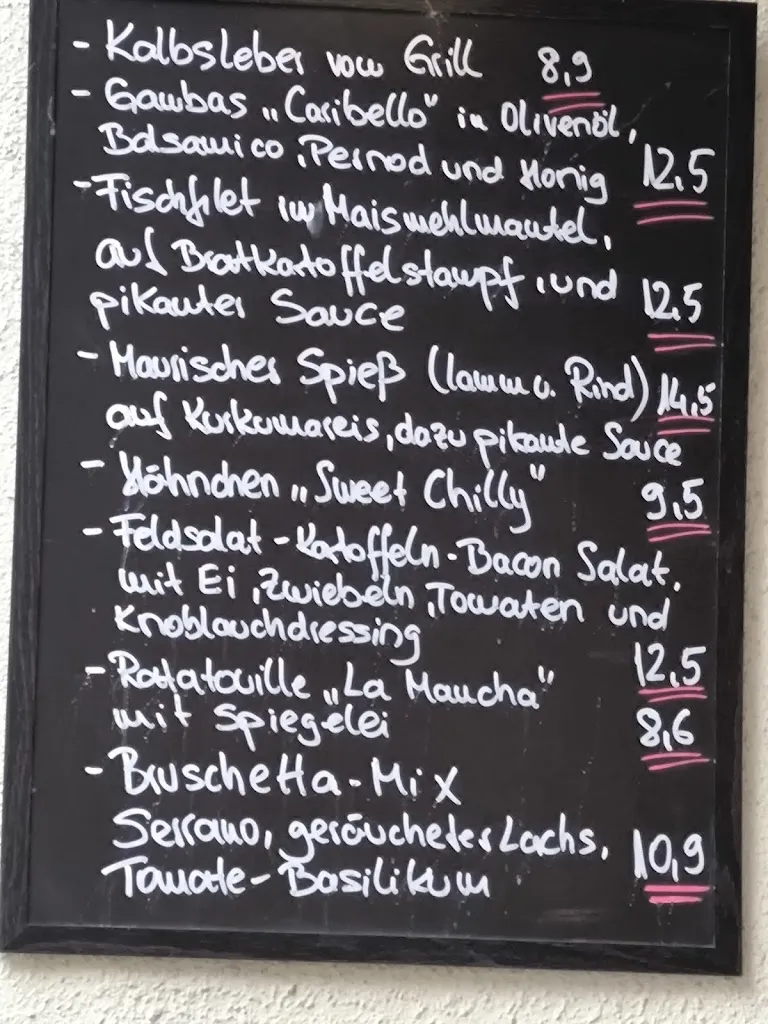 - Kalbsleber vom Grill 8,9
- Gambas „Caribello" in Olivenöl,
Balsamico, Pernod und Honig 12,5
- Fischfilet im Maismehlmantel,
auf Bratkartoffelstampf, und
pikanter Sauce 12,5
- Maurischer Spieß (lamm u. Rind) 14,5
auf Kurkumareis, dazu pikante Sauce
- Hähnchen „Sweet Chilly" 9,5
- Feldsalat - Kartoffeln - Bacon Salat,
mit Ei, Zwiebeln, Tomaten und
Knoblauchdressing 12,5
- Ratatouille „La Mancha"
mit Spiegelei 8,6
- Bruschetta - Mix
Serrano, geräucheter Lachs,
Tomate - Basilikum 10,9